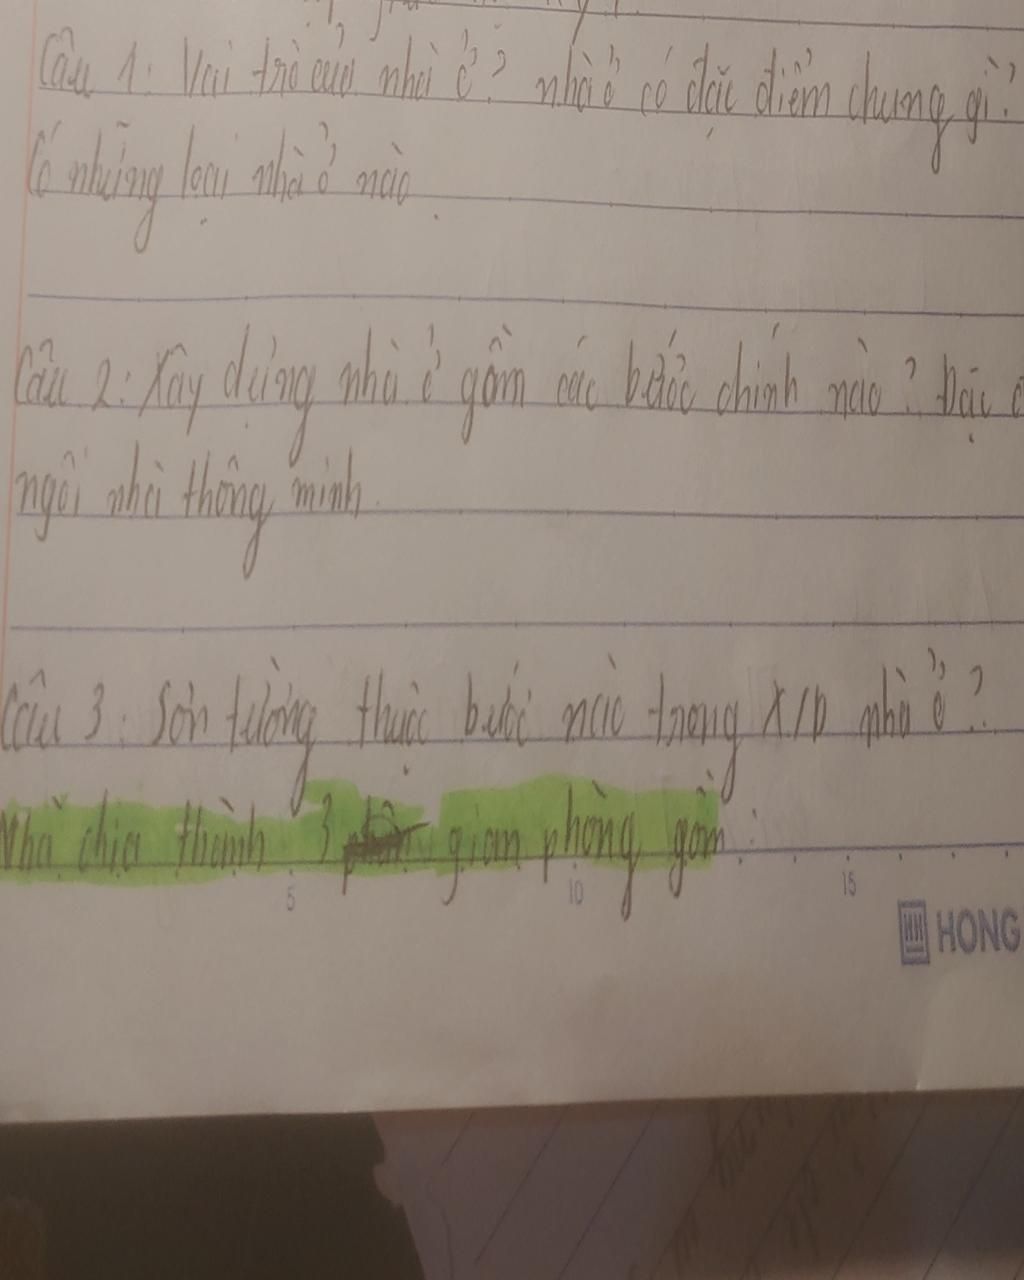 Câu 1: Vai trò của nhà ở? nhà ở có đặc điểm chung gì?
Có những loại nhà ở nào.
Câu 2: Xây dựng nhà ở gồm các bước chính nào? Đặc
ngôi nhà thông minh.
Câu 3: Sơn tường thuộc bước nào trong X/D nhà ở?
Nhà chia thành 3 gian phòng gồm:
5 10 15
HONG